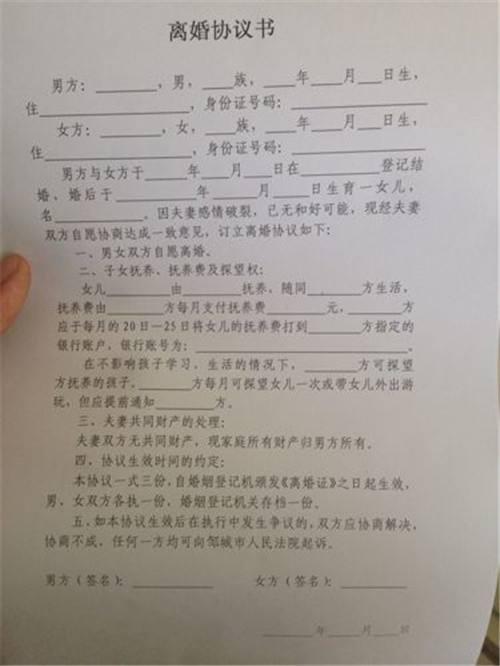 离婚协议书
男方：________，男，____族，____年____月____日生，
住____________________，身份证号码：________________
女方：________，女，____族，____年____月____日生，
住____________________，身份证号码：________________
男方与女方于____年____月____日在__________登记结
婚、婚后于__________年______月____日生育一女儿，
名__________。因夫妻感情破裂，已无和好可能，现经夫妻
双方自愿协商达成一致意见，订立离婚协议如下：
一、男女双方自愿离婚。
二、子女抚养、抚养费及探望权：
女儿________由________抚养、随同________方生活，
抚养费由________方每月支付抚养费________元，________方
应于每月的20日—25日将女儿的抚养费打到________方指定的
银行账户，银行账号为：______________________。
在不影响孩子学习、生活的情况下，________方可探望
方抚养的孩子。________方每月可探望女儿一次或带女儿外出游
玩，但应提前通知________方。
三、夫妻共同财产的处理：
夫妻双方无共同财产，现家庭所有财产归男方所有．
四、协议生效时间的约定：
本协议一式三份，自婚姻登记机颁发《离婚证》之日起生效，
男，女双方各执一份，婚姻登记机关存档一份。
五、如本协议生效后在执行中发生争议的，双方应协商解决，
协商不成，任何一方均可向邹城市人民法院起诉。
男方（签名）：__________ 女方（签名）：__________
________年____月____日